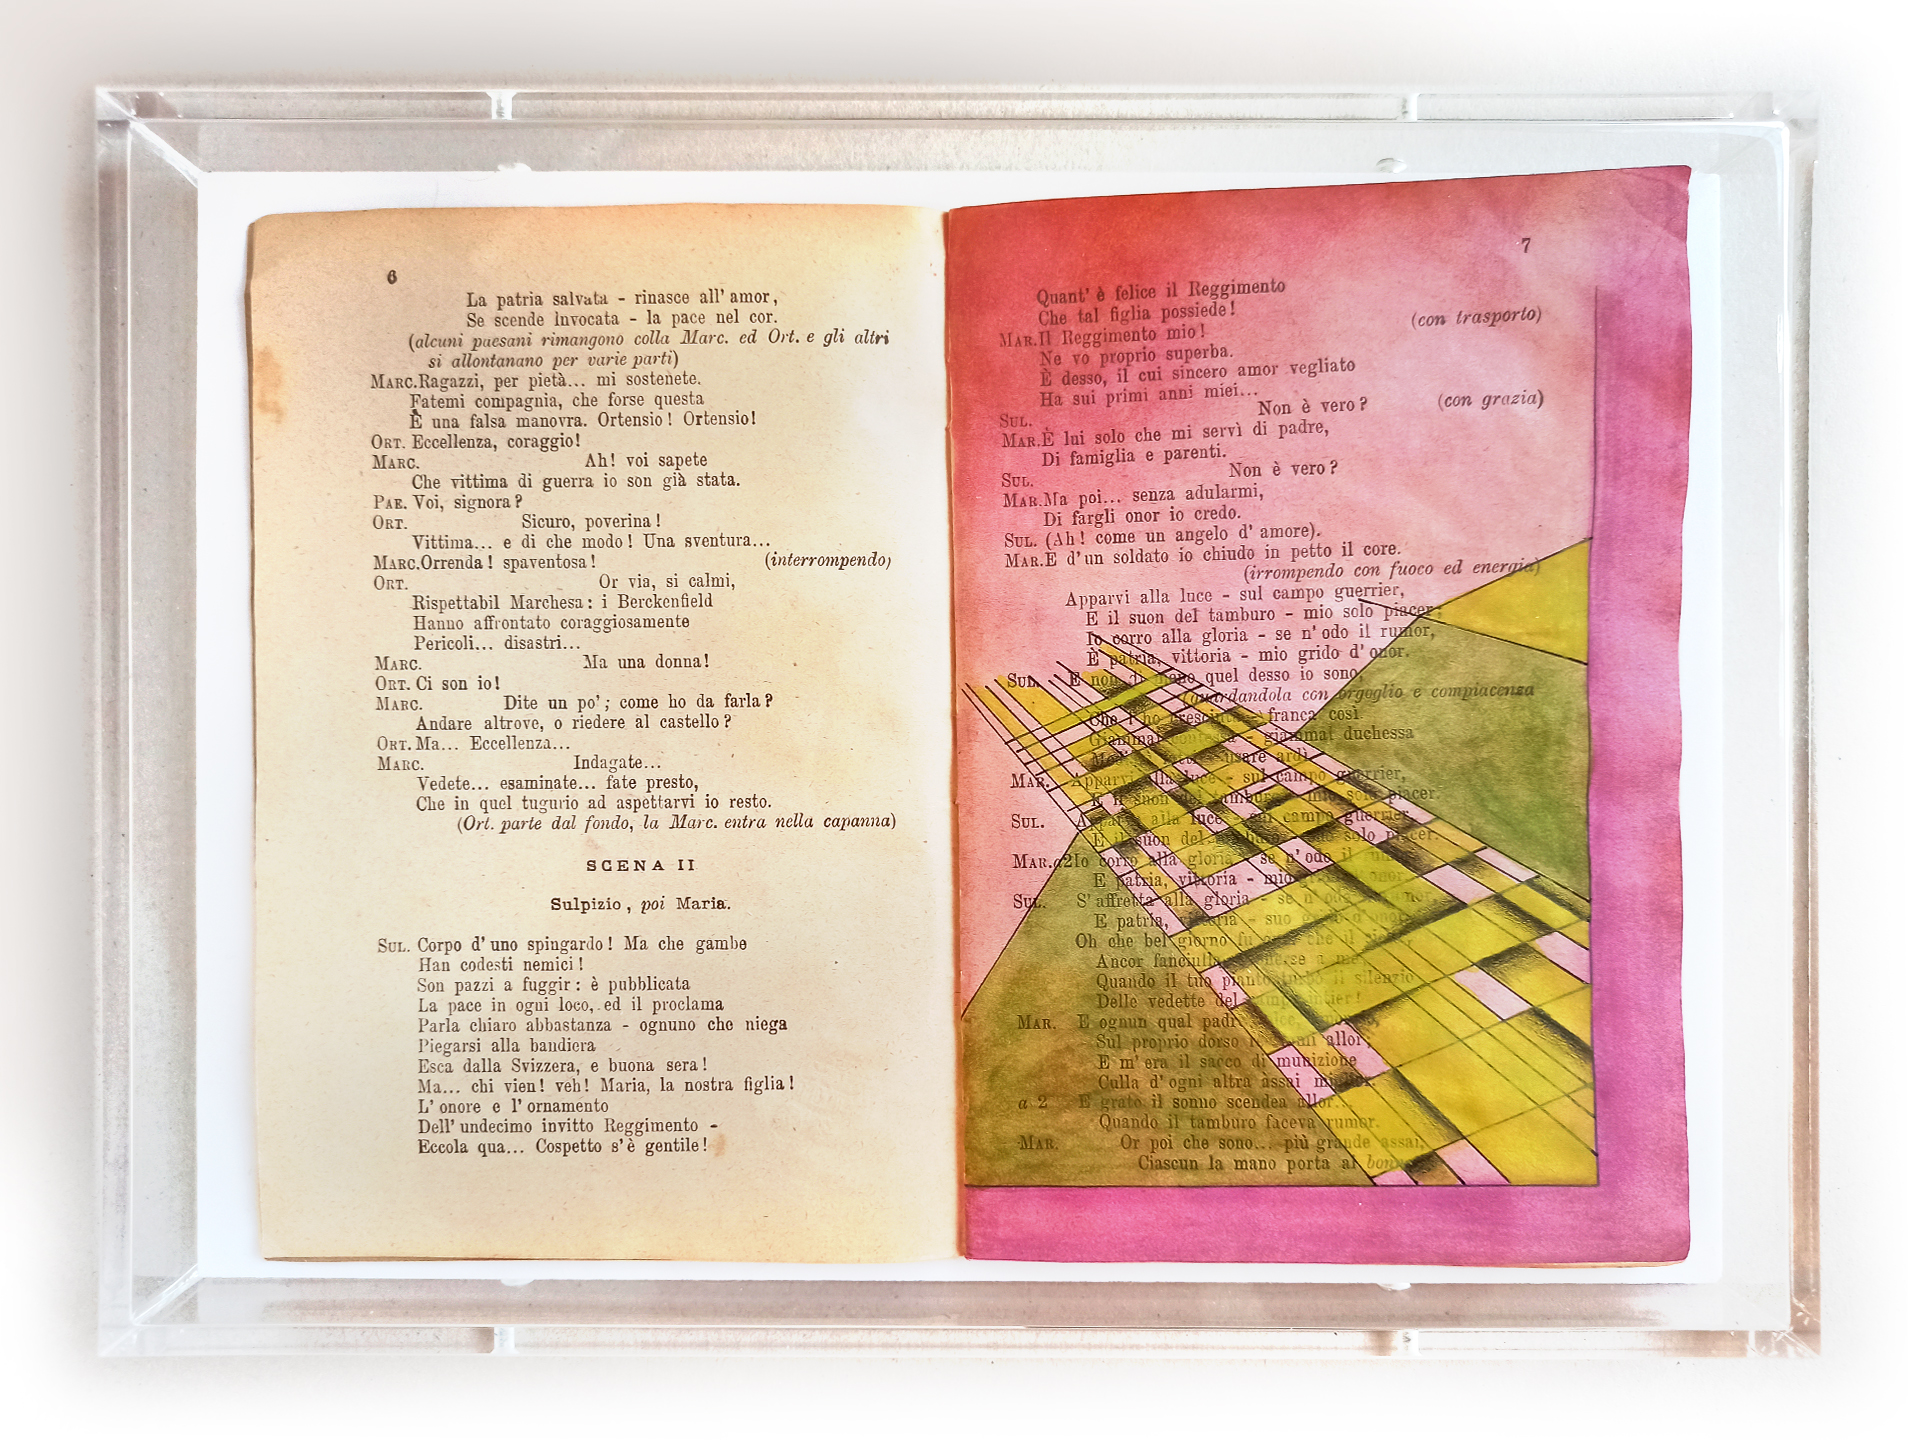 6
La patria salvata - rinasce all' amor,
Se scende invocata - la pace nel cor.
(alcuni paesani rimangono colla Marc. ed Ort. e gli altri
si allontanano per varie parti)
MARC. Ragazzi, per pietà... mi sostenete.
Fatemi compagnia, che forse questa
È una falsa manovra. Ortensio! Ortensio!
ORT. Eccellenza, coraggio!
MARC. Ah! voi sapete
Che vittima di guerra io son già stata.
PAE. Voi, signora?
ORT. Sicuro, poverina!
Vittima... e di che modo! Una sventura...
MARC. Orrenda! spaventosa! (interrompendo)
ORT. Or via, si calmi,
Rispettabil Marchesa: i Berckenfield
Hanno affrontato coraggiosamente
Pericoli... disastri...
MARC. Ma una donna!
ORT. Ci son io!
MARC. Dite un po'; come ho da farla?
Andare altrove, o riedere al castello?
ORT. Ma... Eccellenza...
MARC. Indagate...
Vedete... esaminate... fate presto,
Che in quel tugurio ad aspettarvi io resto.
(Ort. parte dal fondo, la Marc. entra nella capanna)
SCENA II
Sulpizio, poi Maria.
SUL. Corpo d' uno spingardo! Ma che gambe
Han codesti nemici!
Son pazzi a fuggir: è pubblicata
La pace in ogni loco, ed il proclama
Parla chiaro abbastanza - ognuno che niega
Piegarsi alla bandiera
Esca dalla Svizzera, e buona sera!
Ma... chi vien! veh! Maria, la nostra figlia!
L' onore e l' ornamento
Dell' undecimo invitto Reggimento -
Eccola qua... Cospetto s' è gentile!
7
Quant' è felice il Reggimento
Che tal figlia possiede!
(con trasporto)
MAR. Il Reggimento mio!
Ne vo proprio superba.
È desso, il cui sincero amor vegliato
Ha sui primi anni miei...
SUL. Non è vero? (con grazia)
MAR. È lui solo che mi servì di padre,
Di famiglia e parenti.
SUL. Non è vero?
MAR. Ma poi... senza adularmi,
Di fargli onor io credo.
SUL. (Ah! come un angelo d' amore).
MAR. E d' un soldato io chiudo in petto il core.
(irrompendo con fuoco ed energia)
Apparvi alla luce - sul campo guerrier,
E il suon del tamburo - mio solo piacer;
Io corro alla gloria - se n' odo il rumor,
È patria, vittoria - mio grido d' onor.
SUL. E non di mano quel desso io sono,
(guardandola con orgoglio e compiacenza
Che l' ho cresciuta - franca così.
Giammai - giammai duchessa
usare ardì
MAR. Apparvi alla luce - sul campo guerrier,
E il suon del tamburo - mio solo piacer
SUL. Apparve alla luce - sul campo guerrier,
E il suon del tamburo - suo solo piacer.
MAR. a 2 Io corro alla gloria - se n' odo il
E patria, vittoria - mio onor
SUL. S' affretta alla gloria - se n' ode
E patria, vittoria - suo grido d' onor
Oh che bel giorno fu che il
Ancor fanciulla a me,
Quando il tuo pianto turbò il silenzio
Delle vedette del
MAR. E ognun qual padre
Sul proprio dorso allor;
E m' era il sacco di munizione
Culla d' ogni altra assai miglior.
a 2 E grato il sonno scendea allor...
Quando il tamburo faceva rumor.
MAR. Or poi che sono... più grande assai,
Ciascun la mano porta al